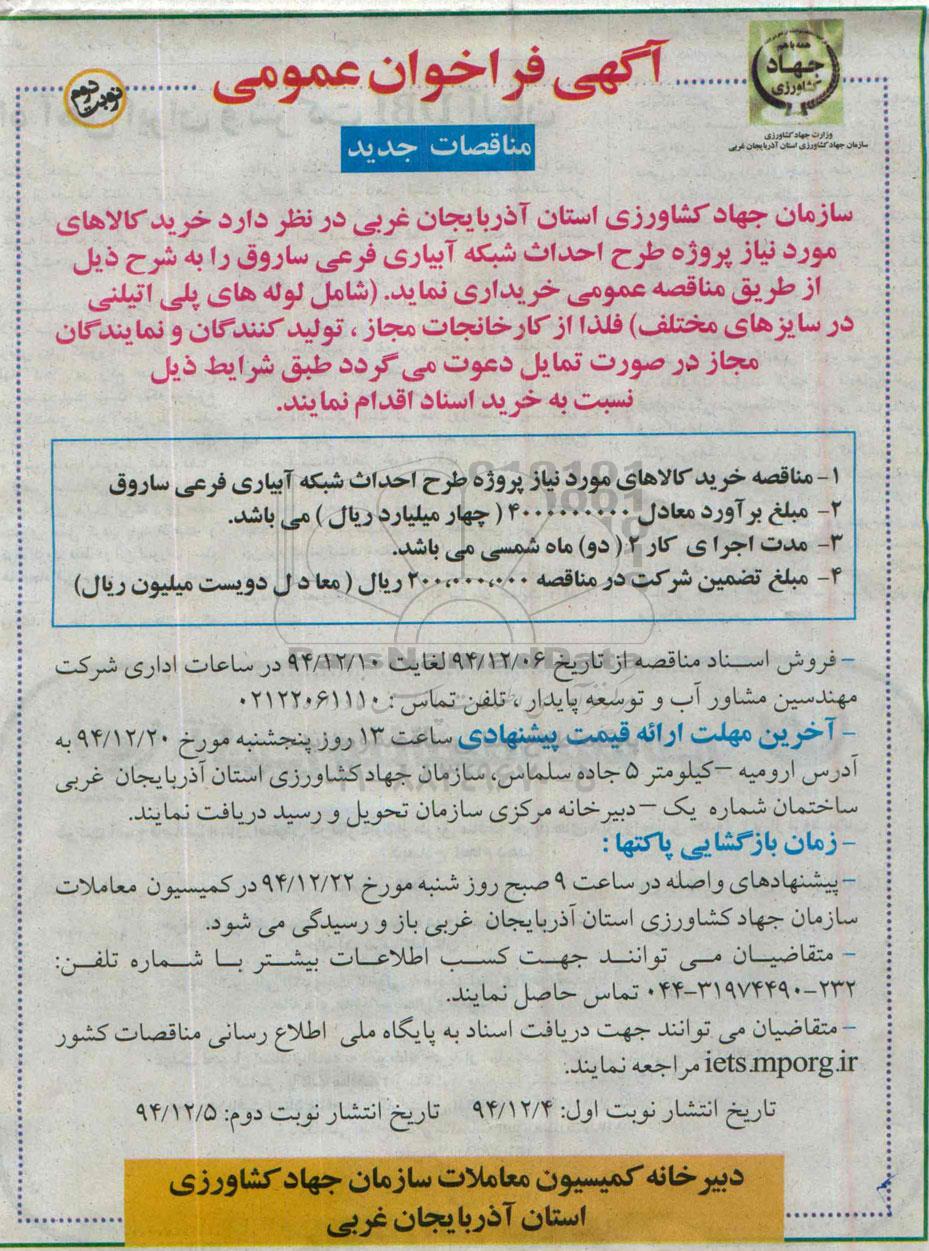 همه با هم
جهاد
کشاورزی
وزارت جهاد کشاورزی
سازمان جهاد کشاورزی استان آذربایجان غربی
آگهی فراخوان عمومی
نوبت دوم
مناقصات جدید
سازمان جهاد کشاورزی استان آذربایجان غربی در نظر دارد خرید کالاهای
مورد نیاز پروژه طرح احداث شبکه آبیاری فرعی ساروق را به شرح ذیل
از طریق مناقصه عمومی خریداری نماید. (شامل لوله های پلی اتیلنی
در سایزهای مختلف) فلذا از کارخانجات مجاز ، تولید کنندگان و نمایندگان
مجاز در صورت تمایل دعوت می گردد طبق شرایط ذیل
نسبت به خرید اسناد اقدام نمایند.
۱- مناقصه خرید کالاهای مورد نیاز پروژه طرح احداث شبکه آبیاری فرعی ساروق
۲- مبلغ برآورد معادل ۴۰۰۰۰۰۰۰۰۰ ( چهار میلیارد ریال ) می باشد.
۳- مدت اجرا ی کار ۲ ( دو) ماه شمسی می باشد.
۴- مبلغ تضمین شرکت در مناقصه ۲۰۰,۰۰۰,۰۰۰ ریال ( معا د ل دویست میلیون ریال)
- فروش اسناد مناقصه از تاریخ ۹۴/۱۲/۰۶ لغایت ۹۴/۱۲/۱۰ در ساعات اداری شرکت
مهندسین مشاور آب و توسعه پایدار ، تلفن تماس : ۰۲۱۲۲۰۶۱۱۱۰
- آخرین مهلت ارائه قیمت پیشنهادی ساعت ۱۳ روز پنجشنبه مورخ ۹۴/۱۲/۲۰ به
آدرس ارومیه –کیلومتر ۵ جاده سلماس، سازمان جهاد کشاورزی استان آذربایجان غربی
ساختمان شماره یک –دبیرخانه مرکزی سازمان تحویل و رسید دریافت نمایند.
- زمان بازگشایی پاکتها :
- پیشنهادهای واصله در ساعت ۹ صبح روز شنبه مورخ ۹۴/۱۲/۲۲ در کمیسیون معاملات
سازمان جهاد کشاورزی استان آذربایجان غربی باز و رسیدگی می شود.
- متقاضیان می توانند جهت کسب اطلاعات بیشتر با شماره تلفن:
۰۴۴-۳۱۹۷۴۴۹۰-۲۳۲ تماس حاصل نمایند.
- متقاضیان می توانند جهت دریافت اسناد به پایگاه ملی اطلاع رسانی مناقصات کشور
iets.mporg.ir مراجعه نمایند.
تاریخ انتشار نوبت اول: ۹۴/۱۲/۴ تاریخ انتشار نوبت دوم: ۹۴/۱۲/۵
دبیرخانه کمیسیون معاملات سازمان جهاد کشاورزی
استان آذربایجان غربی